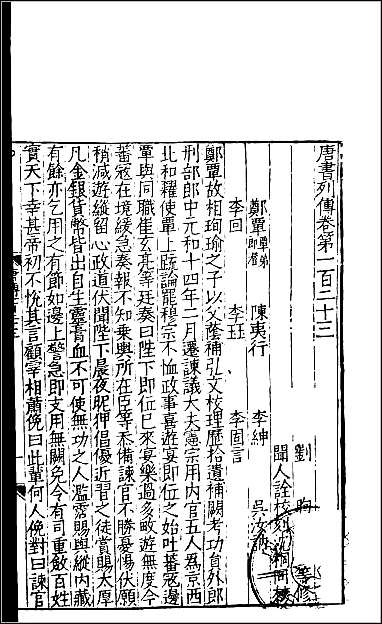 唐書列傳卷第一百二十三
劉昫等修
聞人詮校刻沈桐同校
鄭覃覃弟朗 陳夷行 李紳 吳汝訥
李回 李珏 李固言
鄭覃故相珣瑜之子以父蔭補弘文校理歷拾遺補闕考功員外郎
刑部郎中元和十四年二月遷諫議大夫憲宗用內官五人爲京西
北和糴使覃上疏論罷穆宗不恤政事喜遊宴即位之始吐蕃寇邊
覃與同職崔玄亮等廷奏曰陛下即位已來宴樂過多畋遊無度今
蕃寇在境緩急奏報不知乗輿所在臣等忝備諫官不勝憂惕伏願
稍減遊縱留心政道伏聞陛下晨夜昵狎倡優近習之徒賞賜太厚
凡金銀貨幣皆出自生靈膏血不可使無功之人濫霑賜與縱內藏
有餘亦乞用之有節如邊上警急即支用無闕免令有司重斂百姓
實天下幸甚帝初不悅其言顧宰相蕭俛曰此輩何人俛對曰諫官